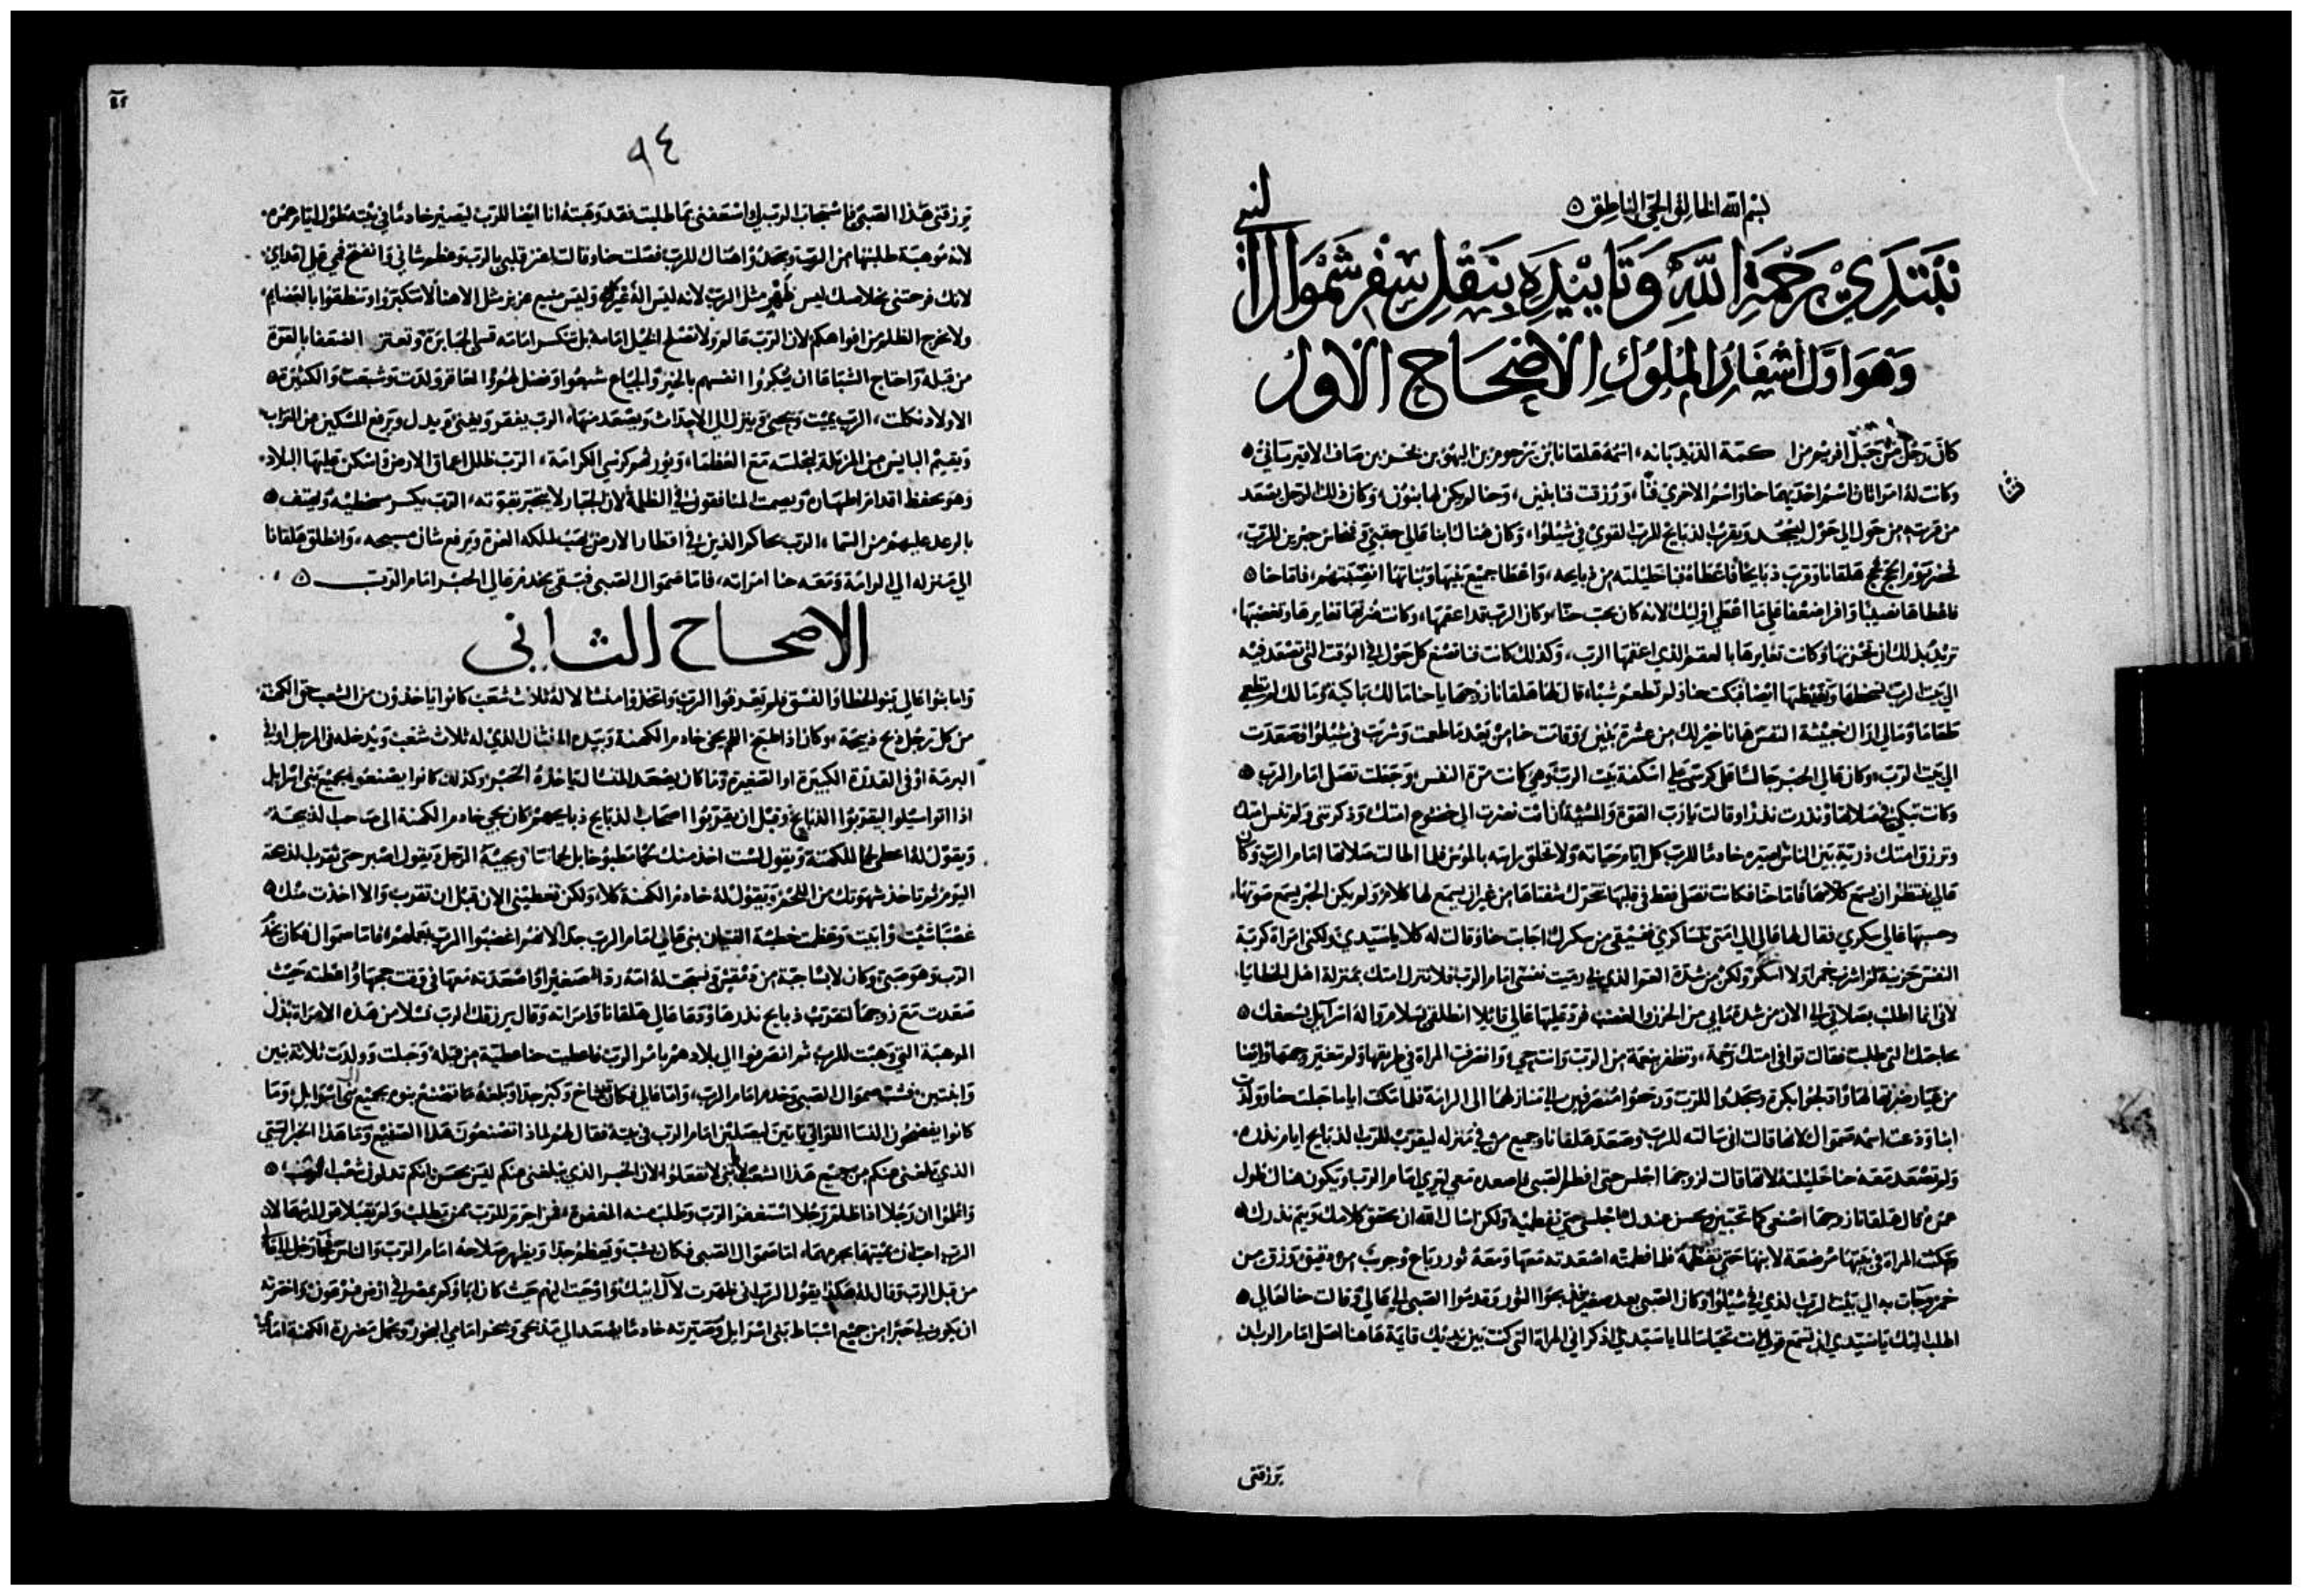 بسم الله الخالق الحي الناطق
نبتدي برحمة الله وتاييده بنقل سفر شموال النبي
وهو اول اسفار الملوك الاصحاح الاول
كان رجل من جبل افريم من كهنة الذي
وكانت له امراتان اسم احديهما حنا واسم الاخري فنا، ورزقت فنا بنين، وحنا لم يكن لها بنون، وكان ذلك الرجل يصعد
فنا
من قريته من حول الي حول ليسجد ويقرب الذبايح للرب القوي في شيلوا، وكان هناك ابنا عالي حفني وفنحاس حبرين للرب،
هلقانا وقرب ذبايحا فاعطاه فنا حليلته من ذبايحه، واعطا جميع بنيها وبناتها انصبتهم، فاما حنا
فاعطاها نصيبا وافرا ضعفا علي ما اعطي اوليك لانه كان يحب حنا، وكان الرب قد اعقمها، وكانت ضرتها تغايرها وتغضبها،
تريد بذلك ان تحزنها وكانت تغايرها بالعقم الذي اعقمها الرب، وكذلك كانت فنا تصنع كل حول في الوقت التي تصعد فيه
الي بيت الرب تسخطها وتغيظها ايضا فبكت حنا ولم تطعم شيا، قال لها هلقانا زوجها يا حنا ما لك باكية وما لك لم تطعمي
طعاما وما لي اراك خبيثة النفس هانا خير لك من عشرة بنين، وقامت حنا من بعد ما طعمت وشربت في شيلوا وصعدت
الي بيت الرب، وكان عالي الحبر جالسا علي كرسي علي اسكفة بيت الرب وهي كانت مرة النفس وجعلت تصلي امام الرب
وكانت تبكي في صلاتها ونذرت نذرا وقالت يا رب القوة والمشية ان انت نظرت الي خضوع امتك وذكرتني ولم تنس امتك
وترزق امتك ذرية بين الناس اصيره خادما للرب كل ايام حياته ولا تحلق راسه بالموس فلما اطالت صلاتها امام الرب وكان
عالي ينتظر ان يسمع كلامها فاما حنا فكانت تصلي فقط في قلبها تتحرك شفتاها من غير ان يسمع لها كلام ولم يكن الحبر يسمع صوتها،
وحسبها عالي سكري فقال لها عالي الي متي تسكري فيقي من سكرك اجابت حنا وقالت له كلا يا سيدي ولكني امراة كربة
النفس حزينة لم اشرب خمرا ولا اسكر ولكن من شدة امام الرب فلا تنزل امتك بمنزلة اهل الخطايا،
لاني انما اطلب بصلاتي الي الان من شدة ما بي من الحزن والغضب فرد عليها عالي قايلا انطلقي بسلام واله اسرايل يسعفك
بحاجتك التي طلبت فقالت توافي امتك رحمة، وتظفر بنعمة من الرب وانصرفت المراة في طريقها ولم تتغير وجهها وايضا
لها وادلجوا بكرة وسجدوا للرب ورجعوا منصرفين الي منازلهما الي الرامة فلما مكث اياما حبلت حنا وولدت
ابنا ودعت اسمه صموال لانها قالت اني سالته للرب وصعد هلقانا وجميع من في منزله ليقرب للرب الذبايح ايام نذره،
ولم تصعد معه حنا حليلته لانها قالت لزوجها اجلس حتي افطم الصبي فاصعده معي ليري امام الرب ويكون هناك طول
عمره قال هلقانا زوجها اصنعي كما تحبين ويحسن عندك اجلسي حتي تفطميه ولكن اسال الله ان يحقق كلامك ويتم نذرك
مكثت المراة في بيتها مرضعة لابنها حتي تفطمه فلما فطمته اصعدته معها ومعه ثور رباع وجريب من دقيق وزق من
خمر وجات به الي بيت الرب الذي في شيلوا وكان الصبي بعد صغير فذبحوا الثور وقدموا الصبي الي عالي وقالت حنا لعالي
اطلب اليك يا سيدي ان تسمع قولي انت تحيا سالما يا سيدي اذكر اني المراة التي كنت بين يديك قايمة هاهنا اصلي امام الرب ان
يرزقني
٩٤
يرزقني هذا الصبي فاستجاب الرب لي واسعفني بما طلبت فقد وهبته انا ايضا للرب ليصير خادما في بيته طول ايام عمره،
لانه موهبة طلبتها من الرب وسجدوا هناك للرب فصلت حنا وقالت اعتز قلبي بالرب وعظم شاني وانفتح فمي علي اعداي،
لانك فرحتني بخلاصك ليس طهر مثل الرب لانه ليس اله غيرك وليس منيع عزيز مثل الاهنا لا تستكبروا وتنطقوا بالعظايم،
ولا يخرج الظلم من افواهكم لان الرب عالم ولا تصلح الحيل امامه بل تنكسر امامه قسي الجبابرة وتعتز الضعفا بالقوة
من قبله واحتاج الشباعا ان يكروا انفسهم بالخبز والجياع شبعوا وفضل لهم والعاقر ولدت وشبعت والكثيرة
الاولاد ثكلت، الرب يميت ويحيي وينزل الي الاجداث ويصعد منها، الرب يفقر ويغني ويذل ويرفع المسكين من التراب
ويقيم البايس من المزبلة ليجلسه مع العظما، ويورثهم كرسي الكرامة، الرب ظلل اعماق الارض واسكن عليها البلاد،
وهو يحفظ اقدام اطهاره ويصمت المنافقون في الظلمة لان الجبار لا يتجبر بقوته، الرب يكسر مخطيه ويهتف
بالرعد عليهم من السما، الرب يحاكم الذين في اقطار الارض يهب لملكه العزة ويرفع شان مسيحه، وانطلق هلقانا
الي منزله الي الرامة ومعه حنا امراته، فاما صموال الصبي فبقي يخدم عالي الحبر امام الرب
الاصحاح الثاني
واما بنوا عالي بنو الخطا والفسق فلم يعرفوا الرب واتخذوا منشالا له ثلاث شعب كانوا ياخذون من الشعب حق الكهنة،
من كل رجل ذبح ذبيحة، وكان اذا طبخ اللحم يجي خادم الكهنة وبيده المنشال الذي له ثلاث شعب ويدخله في المرجل او في
البرمة او في القدرة الكبيرة او الصغيرة وما كان يصعد المنشال ياخذه الحبر وكذلك كانوا يصنعوا بجميع بني اسرايل
اذا اتوا شيلوا ليقربوا الذبايح وقبل ان يقربوا اصحاب الذبايح ذبايحهم كان يجي خادم الكهنة الي صاحب الذبيحة،
ويقول له اعطي لحما للكهنة ويقول لست اخذ منك لحما مطبوخا بل لحما نيا ويجيبه الرجل ويقول اصبر حتي نقرب الذبيحة
اليوم ثم تاخذ شهوتك من اللحم ويقول له خادم الكهنة كلا، ولكن تعطيني الان قبل ان تقرب والا اخذت منك
غصبا شيت وابيت وعظمت خطية الفتيان بني عالي امام الرب جدا لانهم اغضبوا الرب بعملهم، فاما صموال فكان يخدم
الرب وهو صبي وكان لابسا جبة من ونسجت له امه ردا صغيرا واصعدته معها في وقت حجها واعطته حيث
صعدت مع زوجها لتقرب ذبايح نذرها ودعا عالي هلقانا وامراته وقال يرزقك الرب نسلا من هذه الامراة بدل
الموهبة التي وهبت للرب، ثم انصرفوا الي بلادهم بامر الرب فاعطيت حنا عطية من قبله وحبلت وولدت ثلاثة بنين
وابنتين فشب صموال الصبي وخدم امام الرب، واما عالي فكان شاخ وكبر جدا وبلغه ما تصنع بنوه بجميع بني اسرايل وما
كانوا يفضحون النسا اللواتي ياتين ليصلين امام الرب في فقال لهم لماذا تصنعون هذا الصنيع وما هذا الخبر السي
الذي بلغني عنكم من جميع هذا الشعب لا يا بني لا تفعلوا لان الخبر الذي بلغني عنكم ليس بحسن
واعلموا ان رجلا اذا ظلم رجلا استغفروا الرب وطلب منه المغفرة، فمن اجرم للرب ممن يطلب ولم يقبلا قول ابيهما لان
الرب احب ان يميتهما بجرمهما، اما صموال الصبي فكان يشب ويعظم جدا ويظهر صلاحه امام الرب والناس، فجا رجل الي عالي
من قبل الرب وقال له هكذا يقول الرب اني ظهرت لال ابيك واوحيت اليهم حيث كان اباوكم بمصر في ارض فرعون واخترته
ان يكون لي حبرا من جميع اسباط بني اسرايل وصيرته خادما يصعد الي مذبحي ويبخر امامي البخور ويحمل الكهنة امامي